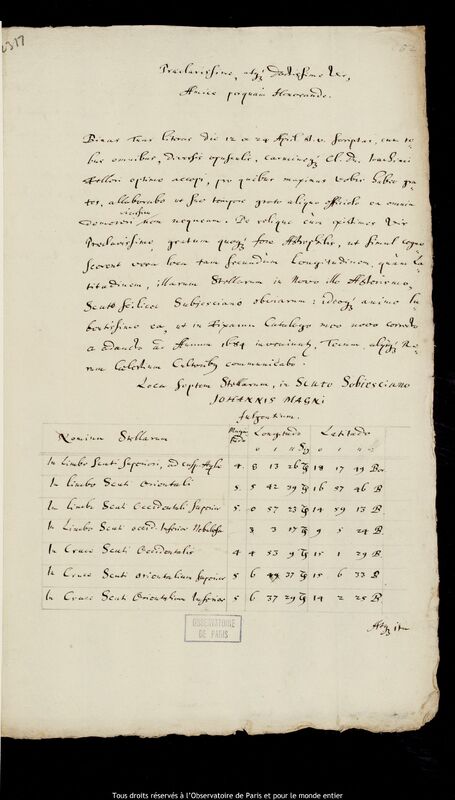 2317
62
Præclarissime, atq; Doctissime Vir,
Amice perquam Honorande.
Binas Tuas literas die 12 & 24 April. st. v. scriptas, cum re-
bus omnibus, diversis opusculis, carmineq; Cl. Dn. Joachimi
Felleri optime accepi, pro quibus maximas Vobis habeo gra-
tes, allaborabo ut suo tempore grato aliquo officiolo ea omnia
vicissim
demereri non nequeam. De reliquo cum existimem Vir
Præclarissime, gratum quoq; fore Astrophilis, ut simul cogno-
scerent vera loca tam secundum Longitudinem, quàm La-
titudinem, illarum Stellarum in Novo illo Asterismo,
Scuto scilicet Sobiesciano obviarum: ideoq; animo lu-
bentissimo ea, ut in Fixarum Catalogo meo novo correcto
ad Annum 1684 inveniuntur, Tecum, aliisq; Re-
rum Coelestium Cultoribus communicabo.
Loca Septem Stellarum, in Scuto Sobiesciano
JOHANNIS MAGNI
fulgentium.
Nomina Stellarum Magni tudo Longitudo Latitudo
In Limbo Scuti Superiori, ad cusp. Aqlæ 4. 8 13 26 ♑ 18 17 49 Bor
In Limbo Scuti Orientali 5. 5 42 39 ♑ 16 57 46 B
In Limbo Scuti Occidentali Superior 5. 0 57 23 ♑ 14 59 13 B
In Limbo Scuti Occid. Inferior Nebulosa 3 3 17 ♑ 9 5 24 B.
In Cruce Scuti Occidentalis 4 4 53 9 ♑ 15 1 29 B.
In Cruce Scuti Orientalium Superior 5 6 49 37 ♑ 15 6 33 B.
In Cruce Scuti Orientalium Inferior 5 6 37 29 ♑ 14 2 25 B
Atq; ita
OBSERVATOIRE
DE PARIS
Tous droits réservés à l'Observatoire de Paris et pour le monde entier